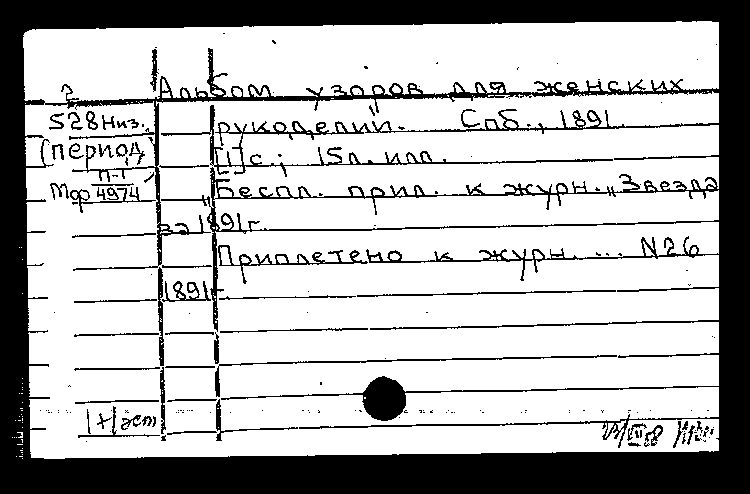 2 Альбом узоров для женских
528 Низ. рукоделий. Спб., 1891
(период) [1] с.; 15 л. илл.
Мф П-1/4974 „Беспл. прил. к журн. „Звезда
за 1891 г.
Приплетено к журн. ... N26
1891 г.
|+| эст